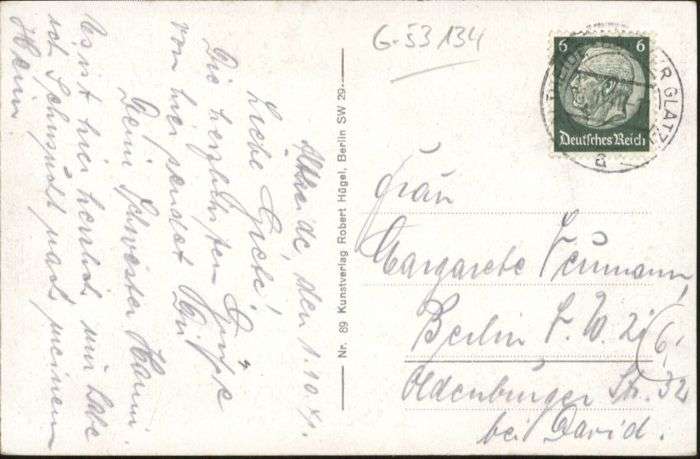 Altheide, den 1.10.41.
Liebe Grete!
Die herzlichsten Grüße
von hier sendet Dir
Deine Schwester Hanni.
Es ist hier herrlich nur habe
ich Sehnsucht nach meinem
Heim
Nr. 89 Kunstverlag Robert Hügel, Berlin SW 29
G-53134
6 6
Deutsches Reich
GLATZ
a
Frau
Margarete Neumann
Berlin S.W. 2
Oldenburger Str. 32
bei David.